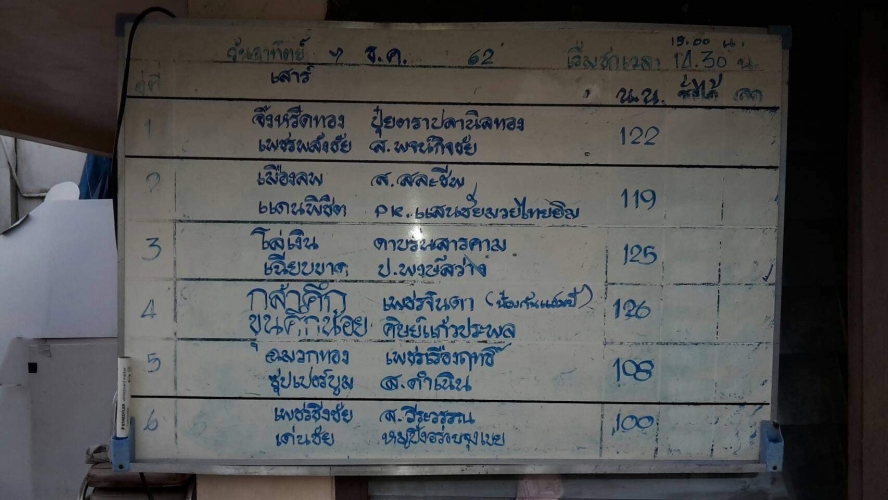 วันอาทิตย์ 7 ธ.ค. 62 เริ่มชกเวลา 14.30 น.
19.00 น.
เสาร์
คู่ที่ น.น. ชั่งได้ ลด
1 จิ้งหรีดทอง ปุ๋ยตราปลานิลทอง 122
เพชรพลังชัย ส.พจน์กิจชัย
2 เมืองลพ ส.สละชีพ 119
แดนพิชิต PK.แสนชัยมวยไทยยิม
3 ไล่เงิน ดาบรันสารคาม 125
เฉียบขาด ป.พงษ์สว่าง
4 กล้าศึก เพชรจินดา 126
ขุนศึกน้อย ศิษย์แก้วประพล
5 หมวกทอง เพชรเรืองฤทธิ์ 108
ซุปเปอร์บูม ส.ดำเนิน
6 เพชรชิงชัย ส.วีระวรรณ 100
เด่นชัย หมูปิ้งอร่อยจุงเบย